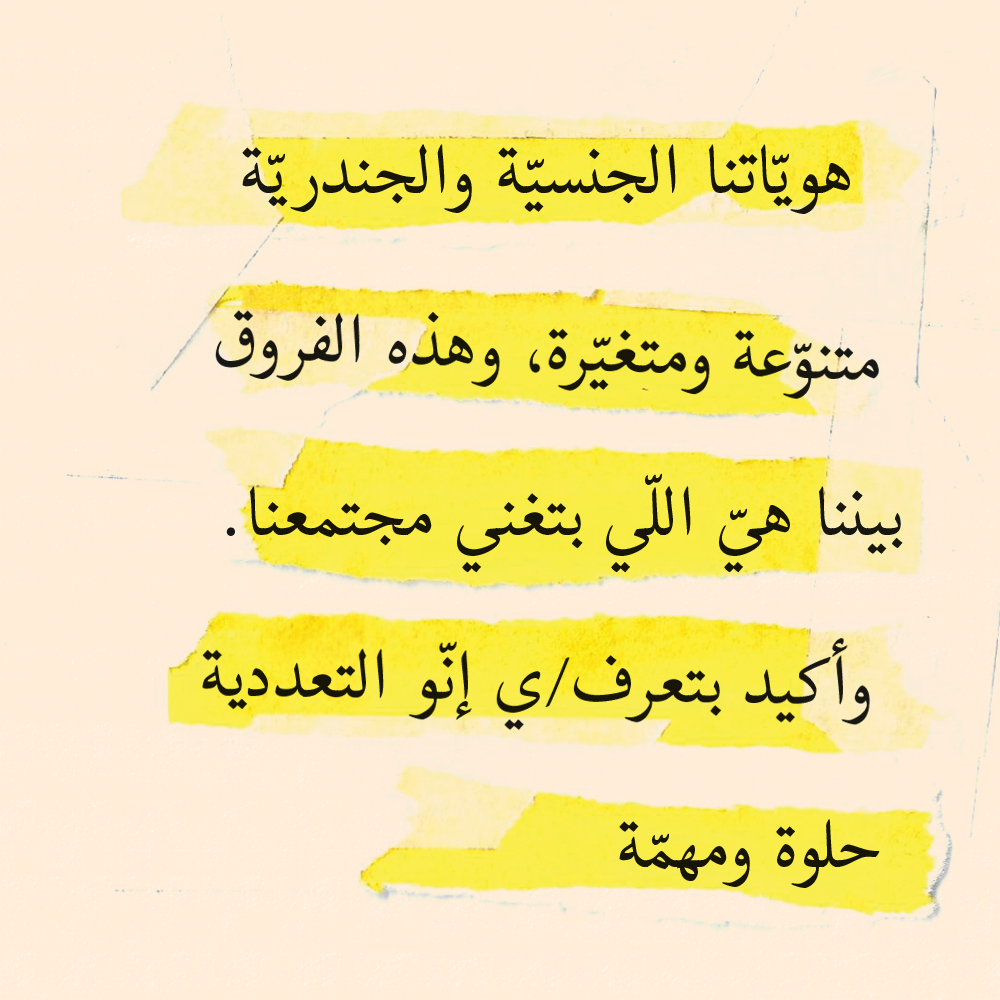 هويّاتنا الجنسيّة والجندريّة
متنوّعة ومتغيّرة، وهذه الفروق
بيننا هيّ اللّي بتغني مجتمعنا.
وأكيد بتعرف/ي إنّو التعددية
حلوة ومهمّة